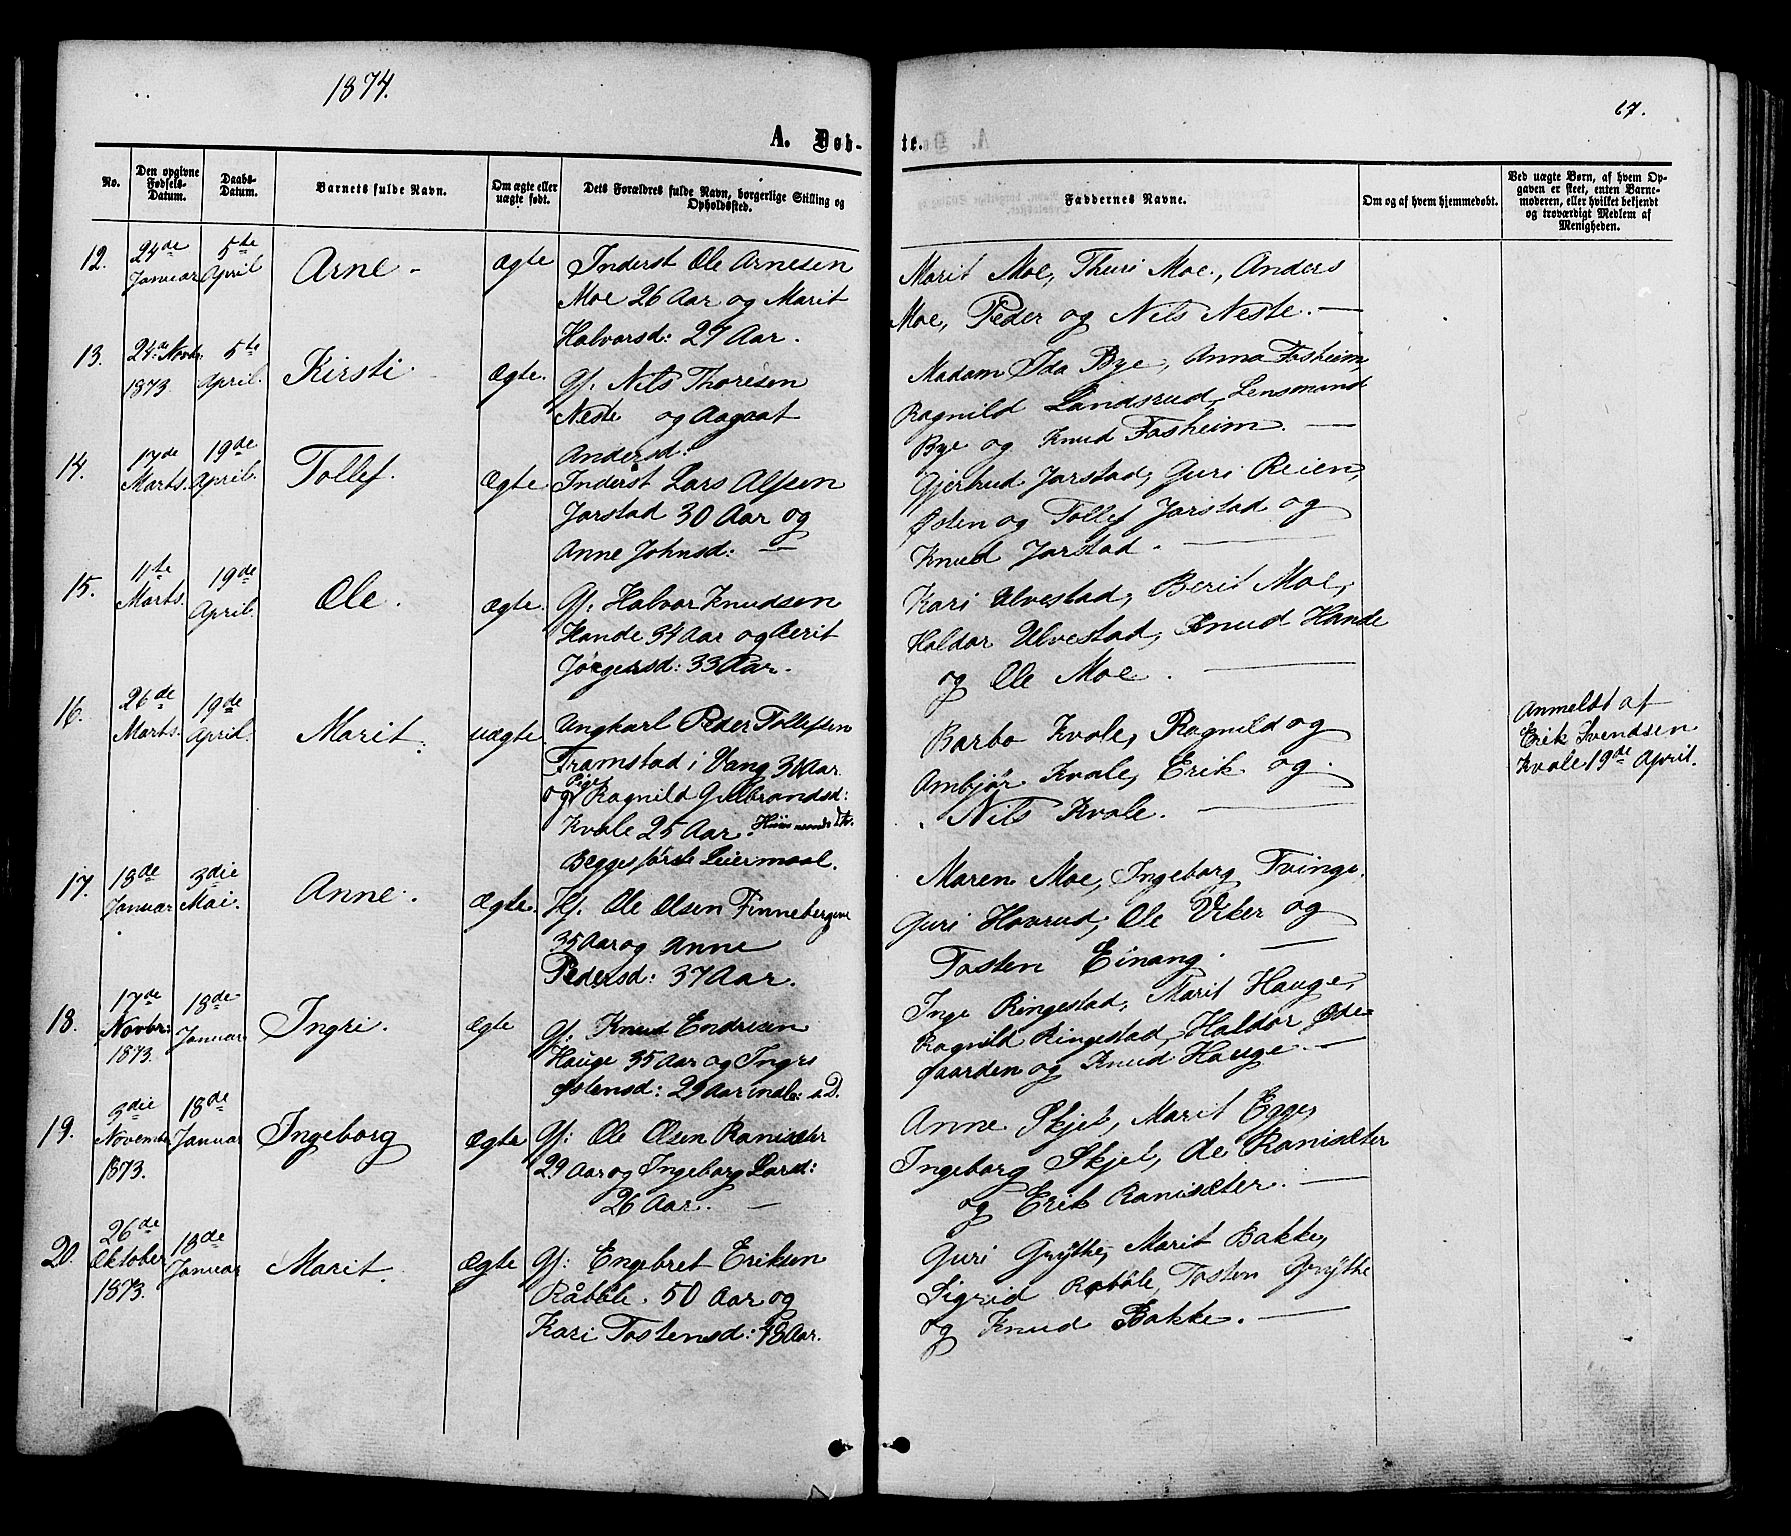 1874.
67.
A. Døb-
te.
No.
Den opgivne Fødsels-Datum.
Daabs-Datum.
Barnets fulde Navn.
Om ægte eller uægte født.
Dets Forældres fulde Navn, borgerlige Stilling og Opholdssted.
Faddernes Navne.
Om og af hvem hjemmedøbt.
Ved uægte Børn, af hvem Op-
gaven er skeet, enten Barne-
moderen, eller hvilket bekjendt
og troværdigt Medlem af
Menigheden.
12.
24de Januar
5te April
Arne -
Ægte
Inderst Ole Arnesen
Moe 26 Aar og Marit
Halvorsd: 27 Aar.
Marit Moe, Thuri Moe., Anders
Moe, Peder og Nils Neste. —
13.
24de Novbr. 1873.
5te April.
Kirsti
Ægte.
Gf. Nils Thoresen
Neste og Aagaat
Andersd:
Madam Ida Bye, Anna Fosheim,
Ragnild Landsrud, Lensmand
Bye og Knud Fosheim. —
14.
17de Marts.
19de April.
Tollef.
Ægte
Inderst Lars Alfsen
Jarstad 30 Aar og
Anne Johnsd: —
Gjertrud Jarstad, Guri Reien,
Østen og Tollef Jarstad og
Knud Jarstad. —
15.
11te Marts.
19de April.
Ole.
Ægte.
Gf. Halvor Knudsen
Hande 34 Aar og Berit
Jørgensd: 33 Aar.
Kari Ulvestad, Berit Moe,
Haldor Ulvestad, Knud Hande
og Ole Moe. —
16.
26de Marts.
19de April.
Marit.
uægte
Ungkarl Peder Tollefsen
Framstad i Vang 30 Aar
og Pige Ragnild Gulbrandsd:
Kvale 25 Aar. Huusmands Dtr.
Begges første Leiermaal.
Barbo Kvale, Ragnild og
Ambjør Kvale, Erik og
Nils Kvale. —
Anmeldt af
Erik Svendsen
Kvale 19de April.
17.
18de Januar
3die Mai.
Anne.
Ægte.
Hf. Ole Olsen Finnebergene
35 Aar og Anne
Pedersd: 37 Aar.
Maren Moe, Ingeborg Tvinge,
Guri Hovrud, Ole Viker og
Tosten Einang. —
18.
17de Novbr. 1873.
18de Januar
Ingri.
Ægte
Gf. Knud Endresen
Hauge 35 Aar og Ingri
Østensd: 29 Aar indl: i D.
Inge Ringestad, Marit Hauge,
Ragnild Ringestad, Haldor Øde-
gaarden og Knud Hauge. —
19.
3die November 1873.
18de Januar
Ingeborg
Ægte
Gf: Ole Olsen Ranisæter
29 Aar og Ingeborg Larsd:
26 Aar. —
Anne Skjel, Marit Egge,
Ingeborg Skjel, Ole Ranisæter
og Erik Ranisæter. —
20.
26de Oktober 1873.
18de Januar
Marit.
Ægte
Gf: Engebret Eriksen
Råbøle. 50 Aar og
Kari Tostensd: 48 Aar.
Guri Grythe, Marit Bakke,
Sigrid Robøle, Tosten Grythe
og Knud Bakke. —